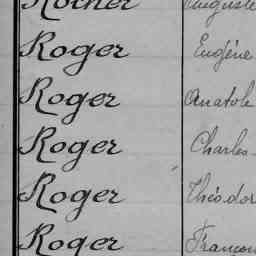 Rocher Auguste
Roger Eugène
Roger Anatole
Roger Charles
Roger Théodor
Roger Françoi